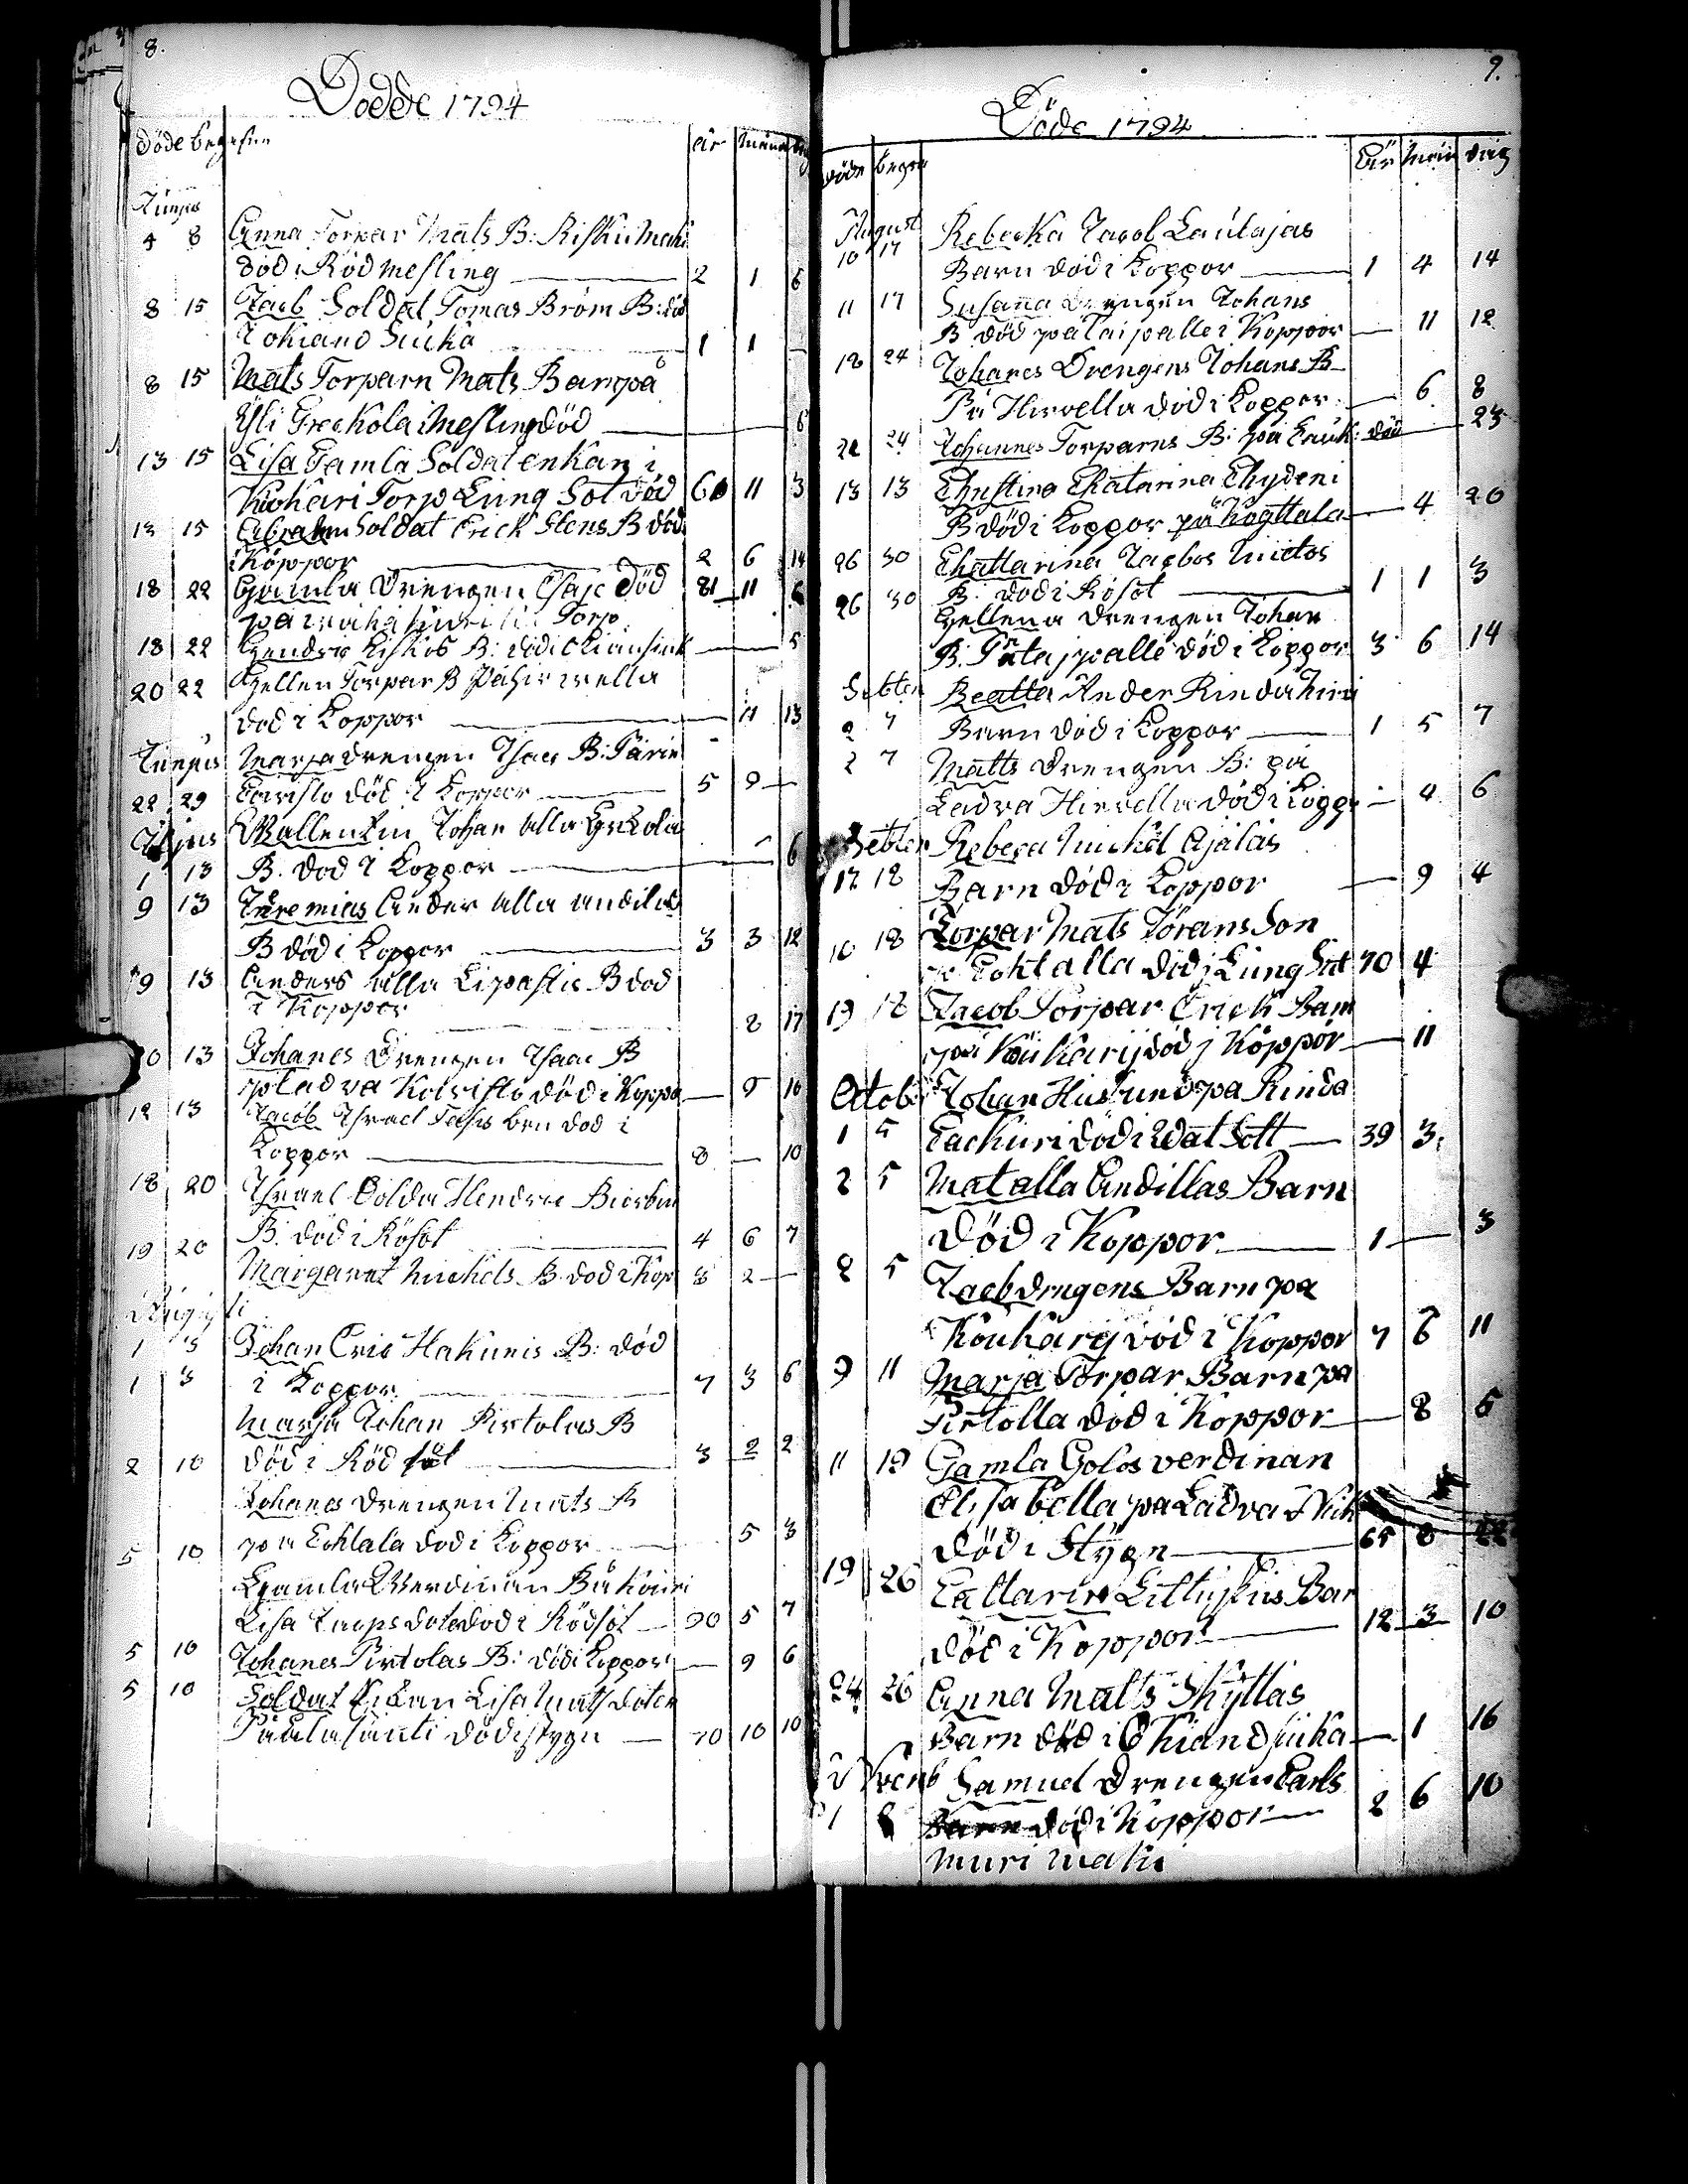 8.
Dödde 1794
döde begrafne år måna dag
Junius
4 8 Anna Torpar Mats B: Riskumaki
död i Röd Mesling 2 1 6
8 15 Jacb Soldat Tomas Bröm B: död
i okiand Siuka 1 1 —
8 15 Mats Torparn Mats Barn på
Yli Greekola i Mesling död 8
13 15 Lisa Gamla Soldat enkan i
Kukari Torp Lung Sot död 60 11 3
13 15 Abrahm Soldat Erick Stens B död
i Koppor 2 6 14
18 22 Gamla Drengen Isac död 81 11 6
pa Torp
18 22 Hendric Kiskos B: död i okiansiuk 5
20 22 Hellen Torpar B På Hirwella
död i Koppor 11 13
Junius Marja drengen Isac B: Pä
22 29 död i Koppor 5 9 —
Julius Wallentin Johan alla
1 13 B. död i Koppor 6
9 13 Jeremias Ander alla andila
B död i Koppor 3 3 12
9 13 Anders alla Lipastis B död
i Koppor 8 17
10 13 Johanes Drengen Isaac B
på ladva Koivisto död i Koppo — 9 10
12 13 Jacob Israel brn död i
Koppor 8 — 10
18 20 Israel Solda Hendric Biorbm
B. död i Rösot 4 6 7
19 20 Margaret Mickels B. död i Kop 8 2 —
Augusti
1 3 Johan Eric Hakunis B: död
1 3 i Koppor 7 3 6
Marja Johan Pirtolas B
2 10 död i Röd sot 3 2 2
Johanes Drengen Mats B
5 10 på Eohtala död i Koppor 5 3
Gamla Werdinan På
Lisa Jacps doter död i Rödsot 90 5 7
5 10 Johanes Pirtolas B: död i Koppor — 9 6
5 10 Soldat Enkan Lisa Mats doter
På död i stygn — 70 10 10
9.
Döde 1794
döde begra År Mån dag
August Rebecka Jacob Laulajas
10 17 Barn död i Koppor 1 4 14
11 17 Susana Drengen Johans
B död på Taipalle i Koppor — 11 12
12 24 Johanes Drengens Johans B
På Hirvella död i Koppor — 6 8
22 24 Johannes Torparns B: på Lauk: död 23
13 13 Christina Chatarina Chydeni
B död i Koppor på Kogttala — 4 20
26 30 Chattarina Jacbos Mietos
B. död i Rösot 1 1 3
26 30 Hellena drengen Johan
B. På taipalle död i Koppor 3 6 14
Sebtem Beatta Ander Rinda
2 7 Barn död i Koppor 1 5 7
2 7 Matts Drengen B: på
Ladva Hirvella död i Koppo — 4 6
Sebtem Rebeca Mickel Ajalas
12 18 Barn död i Koppor — 9 4
10 18 Torpar Mats Jöransson
på Eohtalla död i Lung Sot 70 4
13 18 Jacob Torpar Erick Barn
på Koukarij död i Koppor — 11
Octob Johan Huslund pa Rinda
1 5 Lackuri död i Wat Sott — 39 3
2 5 Mat alla Andillas Barn
död i Koppor 1 — 3
2 5 Jacb drngens Barn pa
Koukarij död i Koppor 7 6 11
9 11 Marja Torpar Barn pa
Pirtolla död i Koppor — 8 5
11 19 Gamla Golos verdinan
Elisabella pa Ladva
död i Stygn 65 8 22
19 26 Cattarin Barn
död i Koppor 12 3 10
24 26 Anna Matts Skyttas
Barn död i Okiand siuka — 1 16
Novemb Samuel Drengen Carls
1 8 Barn död i Koppor 2 6 10
muri maki